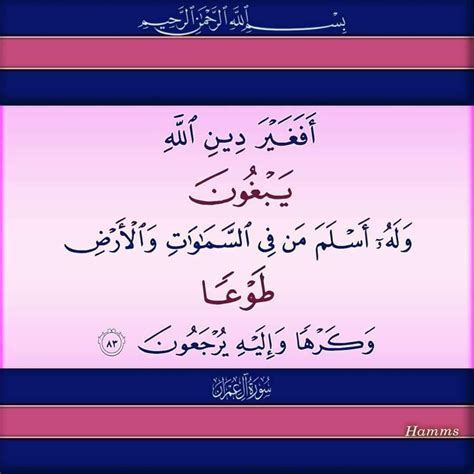 بِسْمِ ٱللَّهِ ٱلرَّحْمَٰنِ ٱلرَّحِيمِ
أَفَغَيْرَ دِينِ ٱللَّهِ
يَبْغُونَ
وَلَهُۥٓ أَسْلَمَ مَن فِى ٱلسَّمَٰوَٰتِ وَٱلْأَرْضِ
طَوْعًا
وَكَرْهًا وَإِلَيْهِ يُرْجَعُونَ ٨٣
سُورَةُ آلِ عِمْرَانَ
Hamms